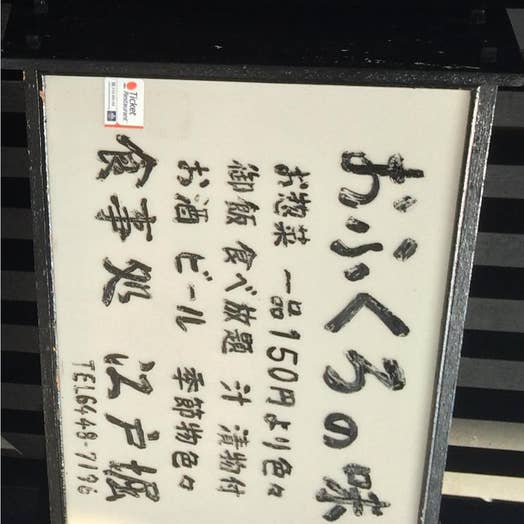 おふくろの味
お惣菜 一品150円より色々
御飯 食べ放題 汁 漬物付
お酒 ビール 季節物色々
食事処 江戸堀
TEL6448-7196
Ticket
Restaurant